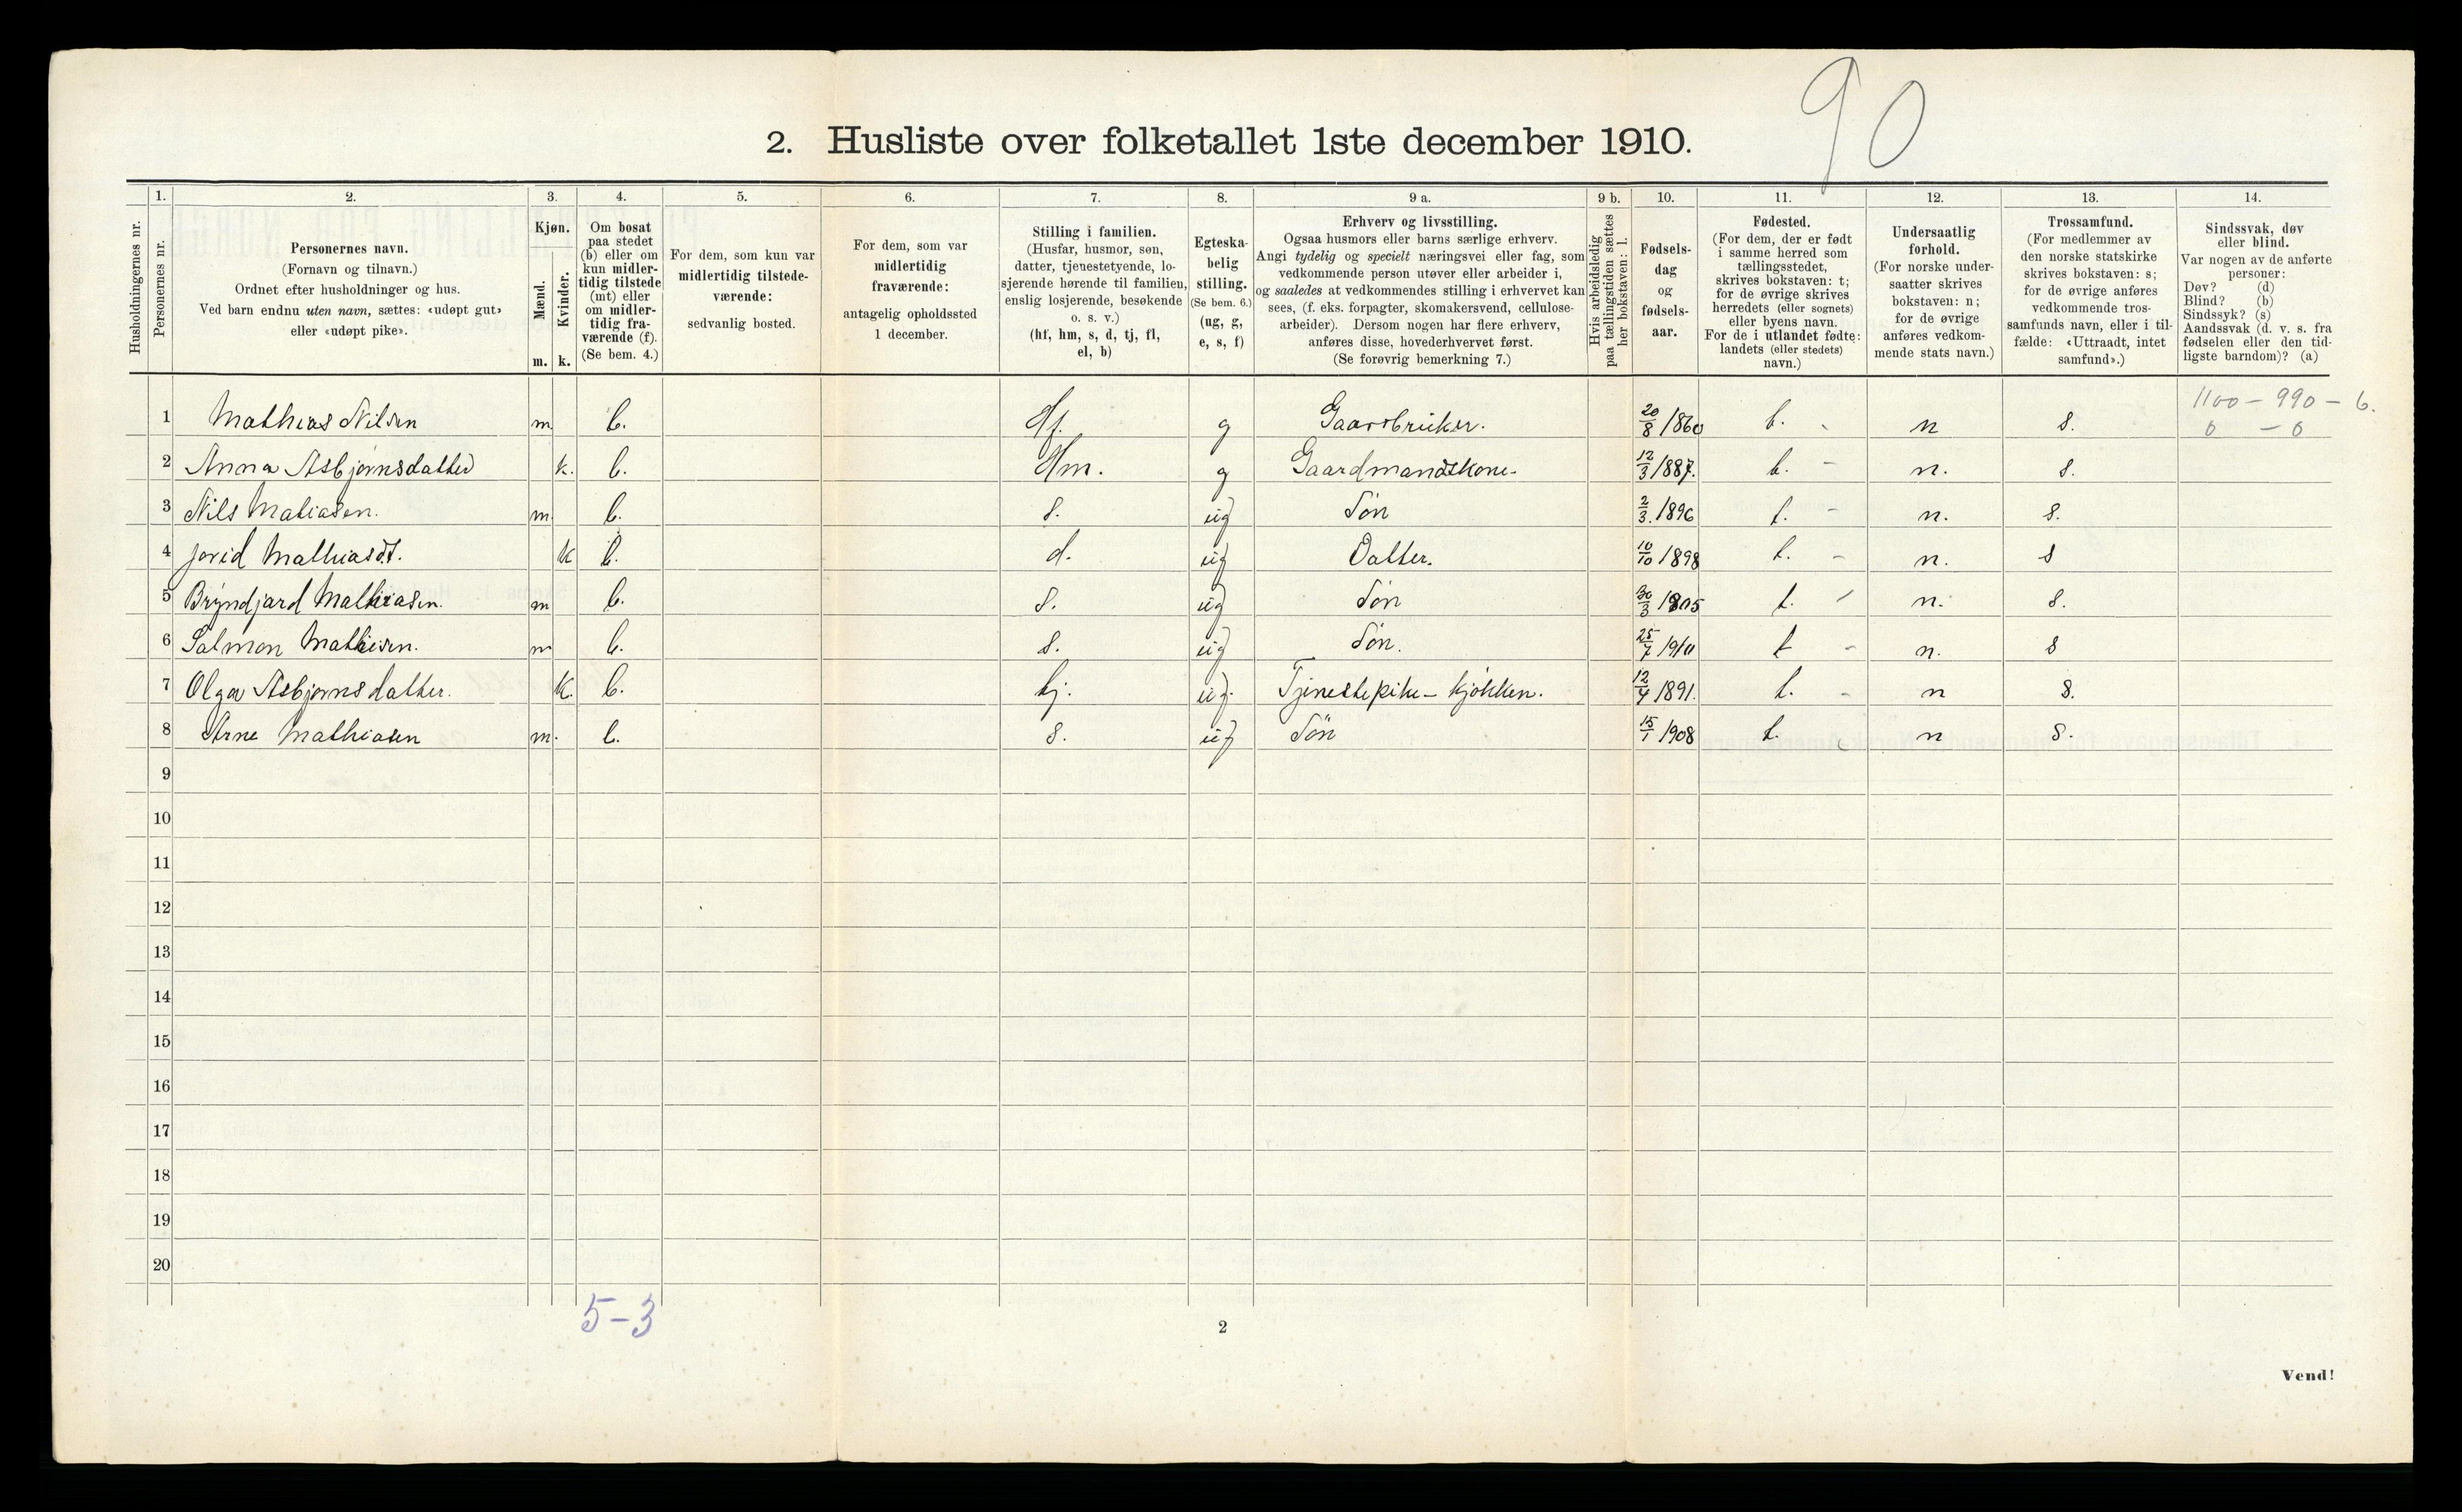 90
2. Husliste over folketallet 1ste december 1910.
1. 2. 3. 4. 5. 6. 7. 8. 9 a. 9 b. 10. 11. 12. 13. 14.
Husholdningernes nr.
Personernes nr.
Personernes navn.
(Fornavn og tilnavn.)
Ordnet efter husholdninger og hus.
Ved barn endnu uten navn, sættes: «udøpt gut»
eller «udøpt pike».
Kjøn.
Mænd.
Kvinder.
m. k.
Om bosat
paa stedet
(b) eller om
kun midler-
tidig tilstede
(mt) eller
om midler-
tidig fra-
værende (f).
(Se bem. 4.)
For dem, som kun var
midlertidig tilstede-
værende:
sedvanlig bosted.
For dem, som var
midlertidig
fraværende:
antagelig opholdssted
1 december.
Stilling i familien.
(Husfar, husmor, søn,
datter, tjenestetyende, lo-
sjerende hørende til familien,
enslig losjerende, besøkende
o. s. v.)
(hf, hm, s, d, tj, fl,
el, b)
Egteska-
belig
stilling.
(Se bem. 6.)
(ug, g,
e, s, f)
Erhverv og livsstilling.
Ogsaa husmors eller barns særlige erhverv.
Angi tydelig og specielt næringsvei eller fag, som
vedkommende person utøver eller arbeider i,
og saaledes at vedkommendes stilling i erhvervet kan
sees, (f. eks. forpagter, skomakersvend, cellulose-
arbeider). Dersom nogen har flere erhverv,
anføres disse, hovederhvervet først.
(Se forøvrig bemerkning 7.)
Hvis arbeidsledig
paa tællingstiden sættes
her bokstaven: l.
Fødsels-
dag
og
fødsels-
aar.
Fødested.
(For dem, der er født
i samme herred som
tællingsstedet,
skrives bokstaven: t;
for de øvrige skrives
herredets (eller sognets)
eller byens navn.
For de i utlandet fødte:
landets (eller stedets)
navn.)
Undersaatlig
forhold.
(For norske under-
saatter skrives
bokstaven: n;
for de øvrige
anføres vedkom-
mende stats navn.)
Trossamfund.
(For medlemmer av
den norske statskirke
skrives bokstaven: s;
for de øvrige anføres
vedkommende tros-
samfunds navn, eller i til-
fælde: «Uttraadt, intet
samfund».)
Sindssvak, døv
eller blind.
Var nogen av de anførte
personer:
Døv? (d)
Blind? (b)
Sindssyk? (s)
Aandssvak (d. v. s. fra
fødselen eller den tid-
ligste barndom)? (a)
1100 – 990 – 6.
0 – 0
1 Mathias Nilsen m b. Hf. g Gaardbruker. 20/8 1860 t. n s.
2 Anna Asbjørnsdatter k. b. Hm. g Gaardmandskone 12/3 1887. t. – n. s.
3 Nils Matiasen. m. b. s. ug Søn 2/3. 1896 t. – n. s.
4 Jorid Mathiasdt. k b. d. ug Datter. 10/10 1898 t. – n. s
5 Bryndjard Mathiasen. m b. s. ug Søn 30/3 1905 t. – n. s.
6 Salmon Mathisen. m b. s. ug Søn. 25/7 1910 t – n. s
7 Olga Asbjørnsdatter. k. b. tj. ug. Tjenestepike – kjøkken. 12/4 1891. t. – n s.
8 Arne Mathiasen m. b. s. ug Søn 15/1 1908 t. n s.
9
10
11
12
13
14
15
16
17
18
19
20
5–3
2
Vend!